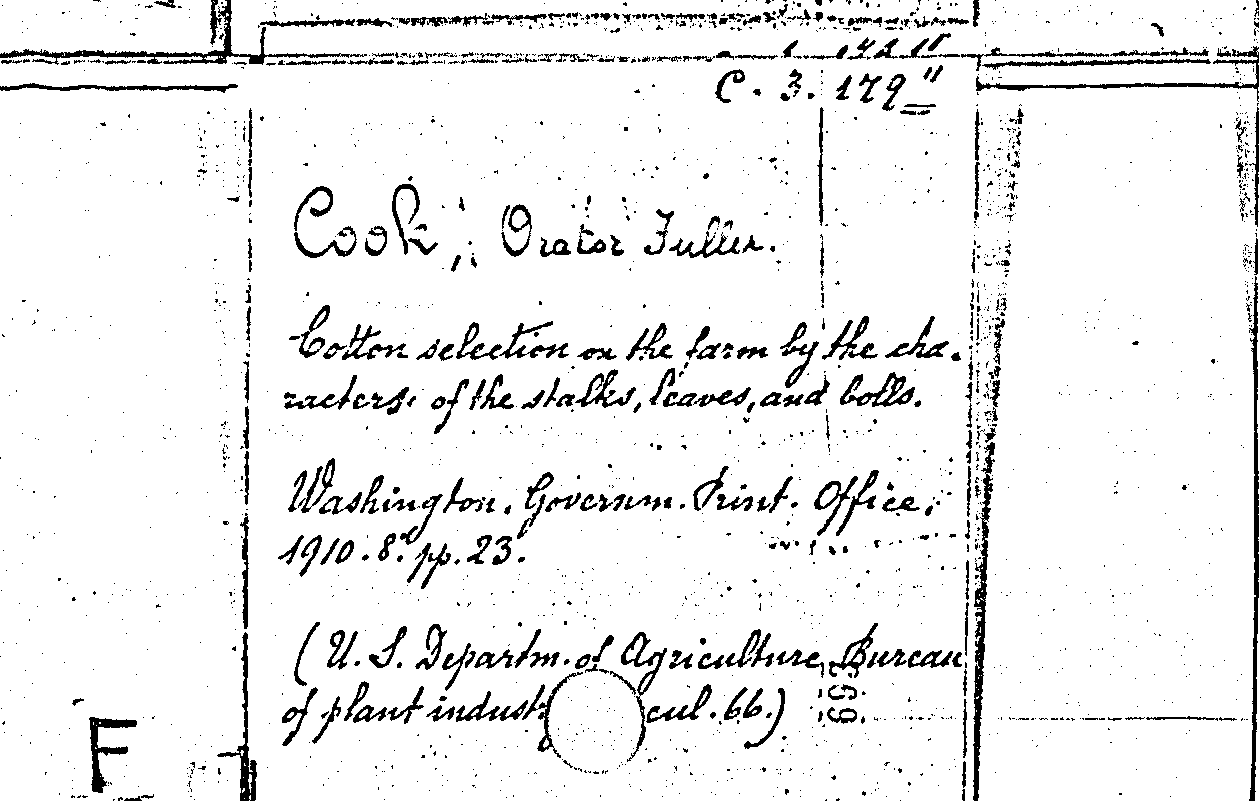 C. 3. 179"
Cook, Orator Fuller.
Cotton selection on the farm by the cha-
racters of the stalks, leaves, and bolls.
Washington. Governm. Print. Office.
1910. 8.° pp. 23.
(U. S. Departm. of Agriculture, Bureau
of plant indust cul. 66.)
F